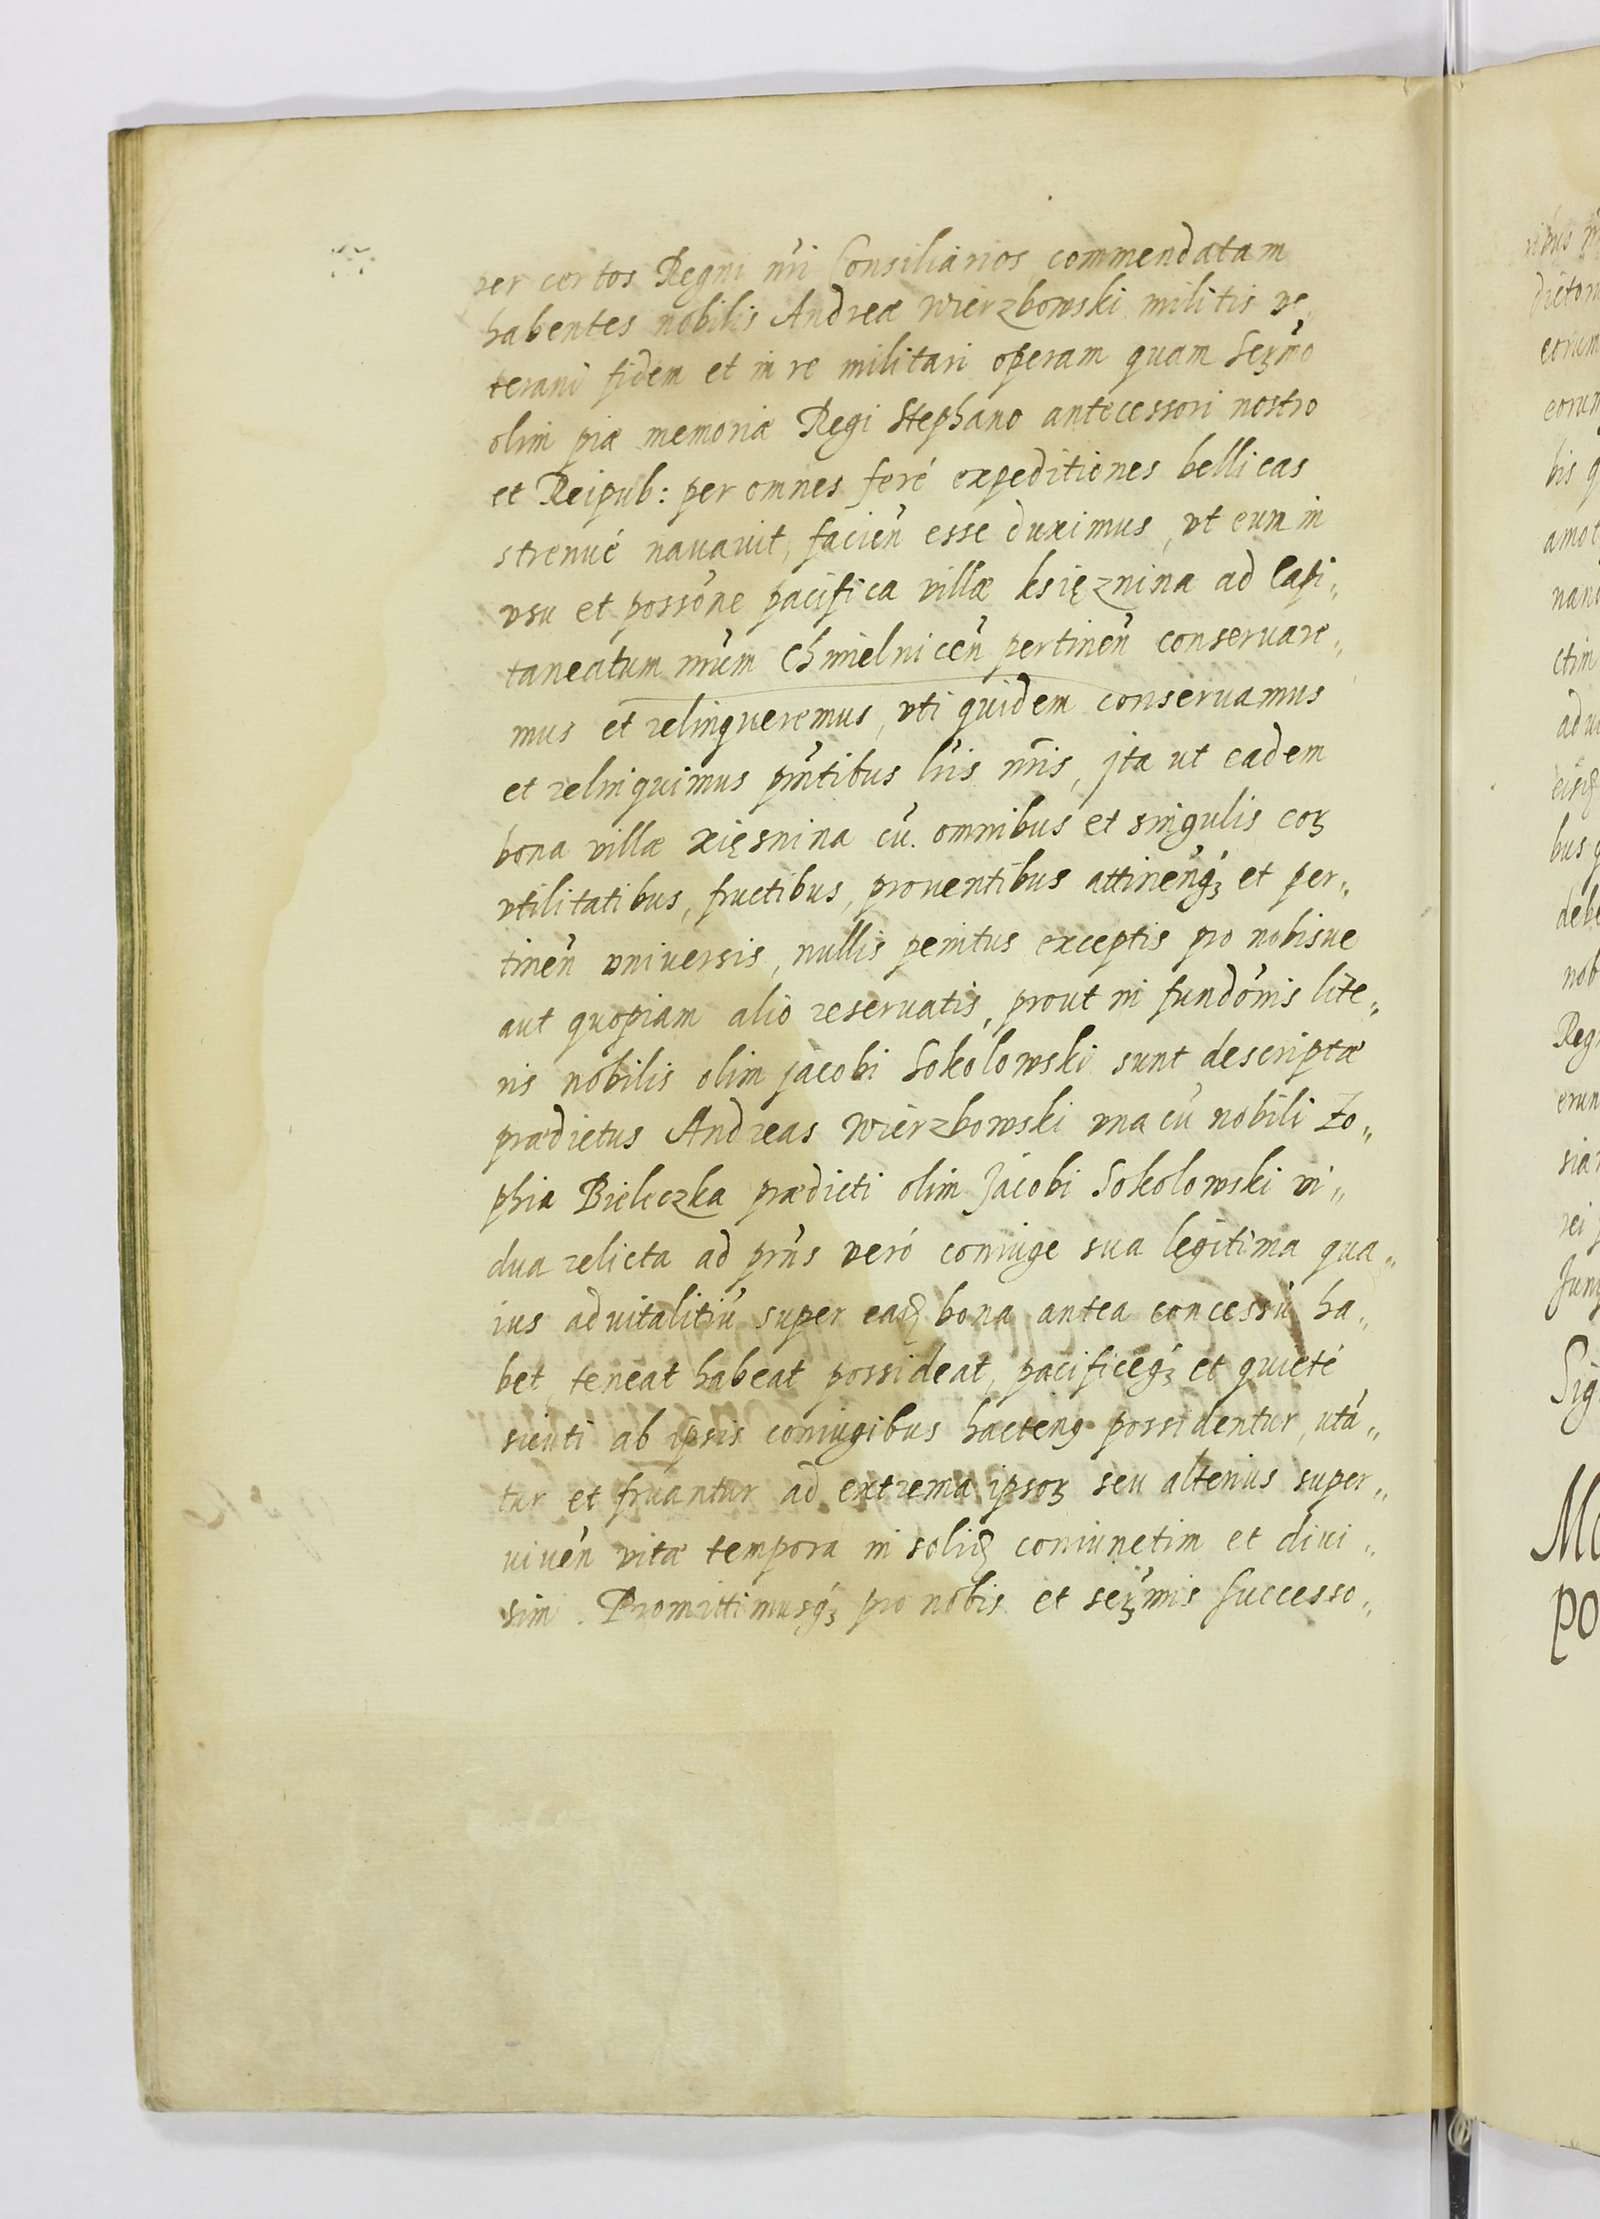 per certos Regni nri Consiliarios commendatam
habentes nobilis Andreæ Wierzbowski militis ve„
terani fidem et in re militari operam quam Serꝫmo
olim piæ memoriæ Regi Stephano antecessori nostro
et Reipub: per omnes feré expeditiones bellicas
strenué nauauit, facien̄ esse duximus, vt eum in
vsu et possōne pacifica villæ księznina ad Capi„
taneatum nrūm Chmielnicen̄ pertinen̄ conseruare„
mus et relinqueremus, vti quidem conseruamus
et relinquimus pn̄tibus lr̄is nr̄is, jta ut eadem
bona villæ xięsnina cū omnibus et singulis eoꝝ
vtilitatibus, fructibus, prouentibus attinen̄qꝫ et per„
tinen̄ vniuersis, nullis penitus exceptis pro nobisue
aut quopiam alio reseruatis, prout in fundōnis lite„
ris nobilis olim jacobi Sokolowski sunt descriptæ
prædictus Andreas Wierzbowski vna cū nobili Zo„
phia Bieleczka prædicti olim Jacobi Sokolowski vi„
dua relicta ad prn̄s veró coniuge sua legitima quæ„
ius aduitalitiū super eaꝗ bona antea concessū ha„
bet, teneat habeat possideat, pacificeqꝫ et quieté
sicuti ab ipsis coniugibus hactenꝰ possidentur, utā„
tur et fruantur ad extrema ipsoꝝ seu alterius super„
viuen̄ vitæ tempora in soliꝗ coniunctim et diui„
sim. Promittimusqꝫ pro nobis et serꝫmis Successo„